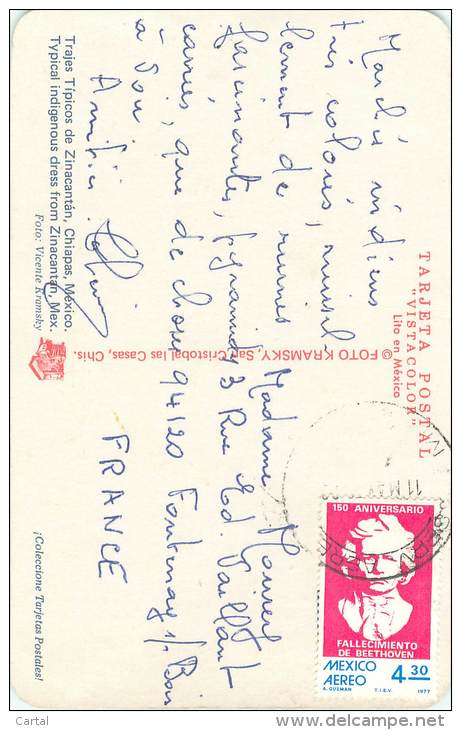 Marchés indiens
très colorés, ruissel-
lement de ruines
fascinantes, pyramides
carrées, que de choses
à voir
Amitiés.
Trajes Típicos de Zinacantán, Chiapas, México.
Typical indigenous dress from Zinacantán, Mex.
Foto: Vicente Kramsky
TARJETA POSTAL
"VISTACOLOR"
Lito en México
© FOTO KRAMSKY, San Cristobal las Casas, Chis.
Madame
3 Rue Ed. Vaillant
94120 Fontenay s/ Bois
FRANCE
¡Coleccione Tarjetas Postales!
11 MAY
150 ANIVERSARIO
FALLECIMIENTO
DE BEETHOVEN
MEXICO
AEREO
4.30
A. GUZMAN T.I.E.V. 1977
Cartal
www.delcampe.net